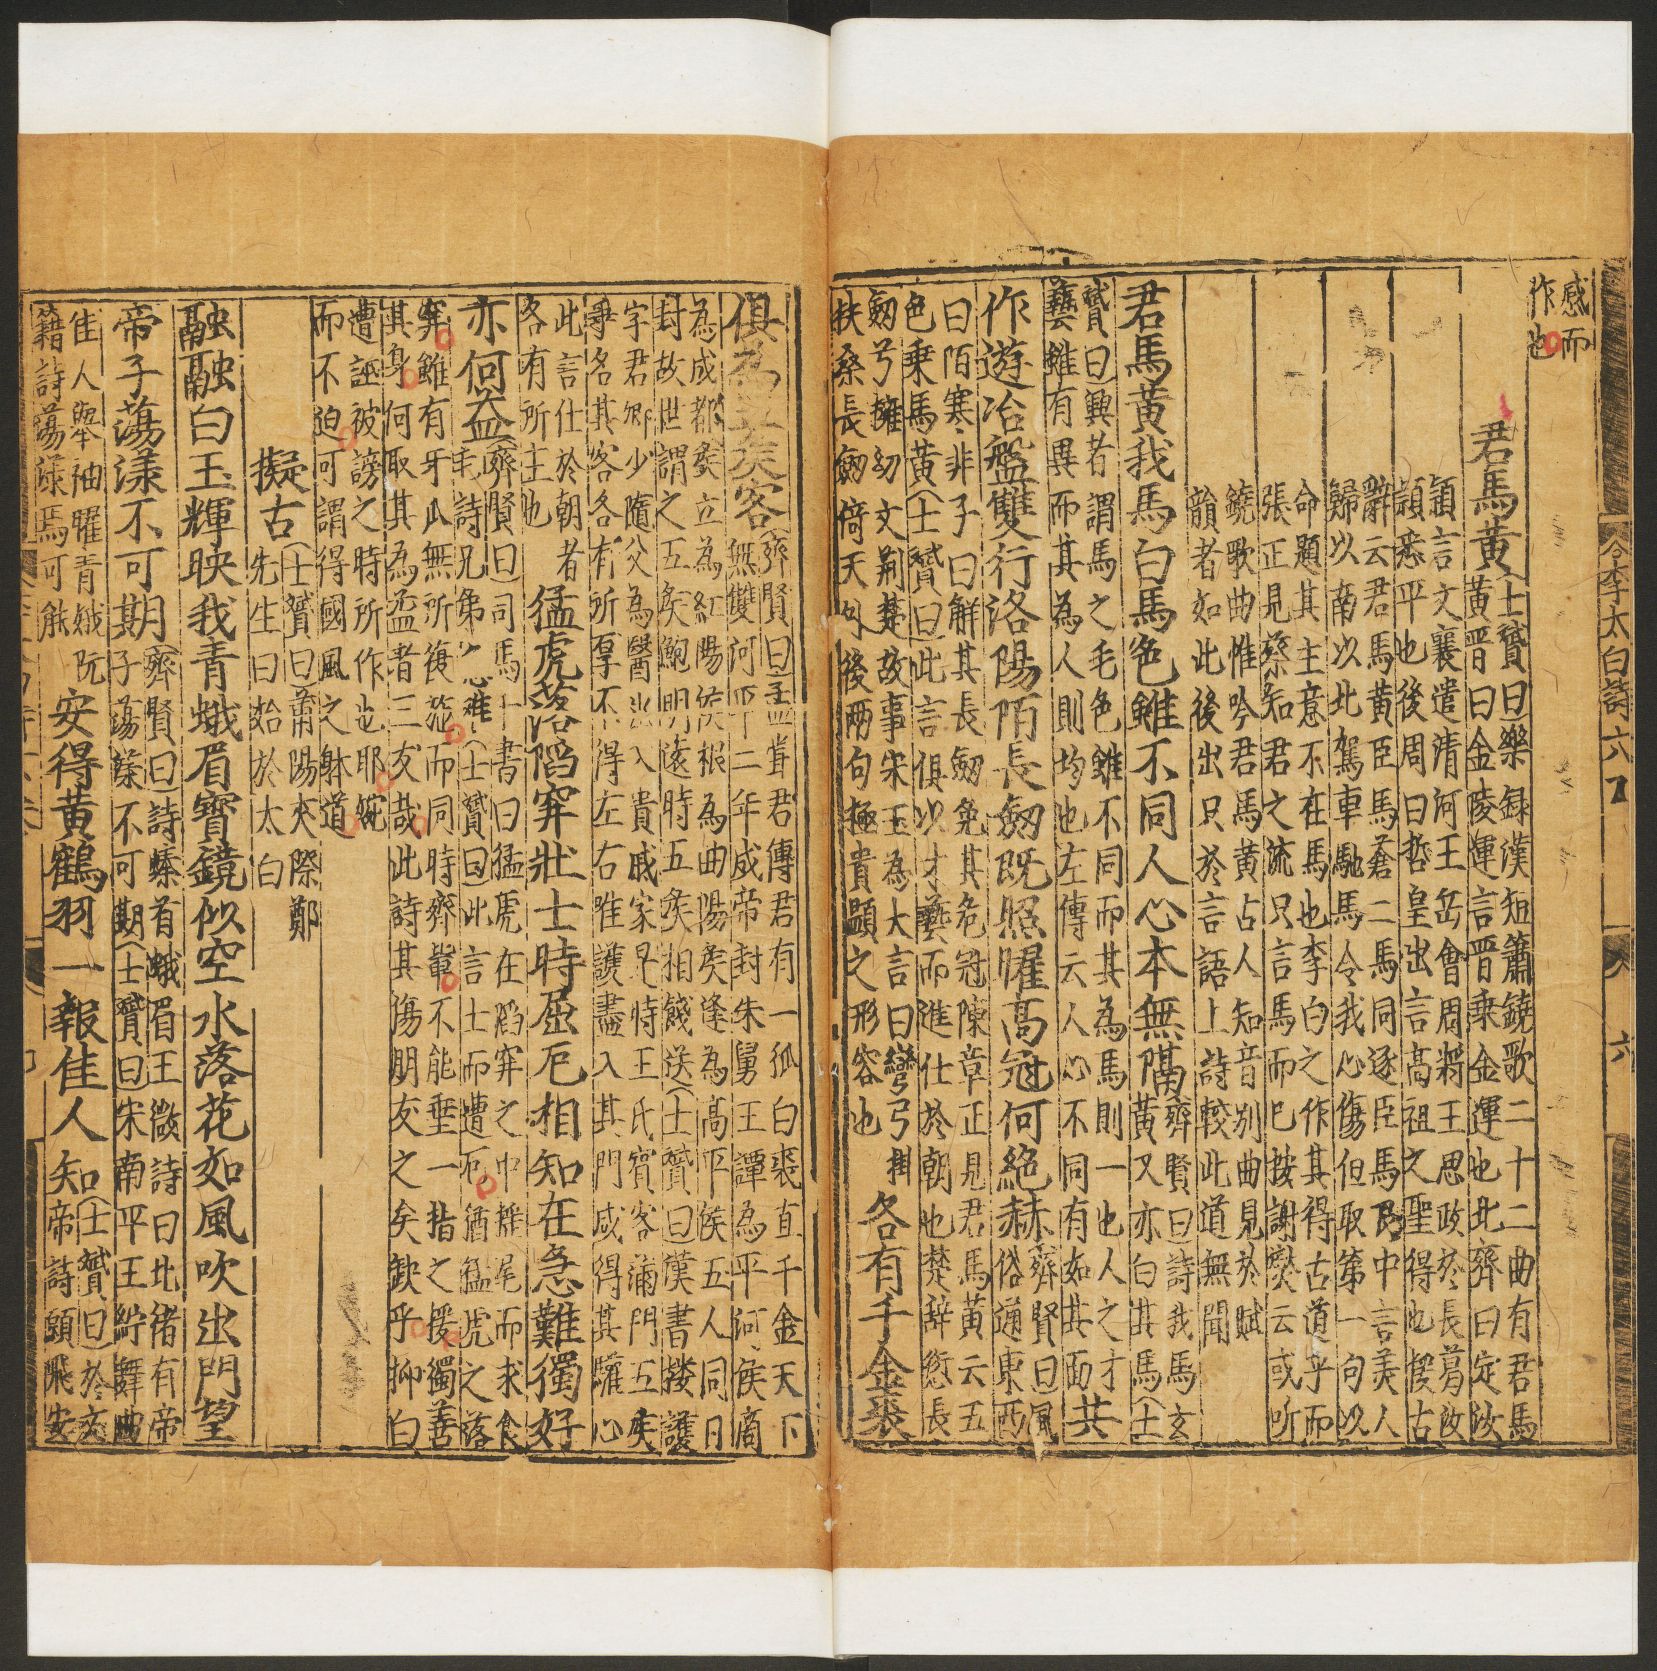 感而
作也
君馬黃
(士贇曰)樂録漢短簫鐃歌二十二曲有君馬
黃晋曰金陵運言晋乗金運也北齊曰定汝
頴言文襄遣清河王岳會周將王思政於長葛汝
頴悉平也後周曰哲皇出言高祖之聖得也擬古
辭云君馬黃臣馬蒼二馬同逐臣馬良中言美人
歸以南以北駕車馳馬令我心傷但取第一句以
命題其主意不在馬也李白之作其得古道乎而
張正見蔡知君之流只言馬而已按謝燮云或听
鐃歌曲惟吟君馬黃占人知音别曲見於賦
韻者如此後出只於言語上詩較此道無聞
君馬黃我馬白馬色雖不同人心本無隔
齊賢曰詩我馬玄
黃又亦白其馬(士
贇曰)興者謂馬之毛色雖不同而其為馬則一也人之才
藝雖有異而其為人則均也左傳云人心不同有如其面
共
作遊冶盤雙行洛陽陌長劔既照曜高冠何絶赫
(齊賢曰)風
俗通東西
曰陌寒非子曰解其長劔免其危冠陳章正見君馬黃云五
色乗馬黃(士贇曰)此言俱以才藝而進仕於朝也楚辭㣼長
劔兮擁幼艾荊楚故事宋玉為大言曰彎弓掛
扶桑長劔倚天外後兩句極貴顯之形容也
各有千金裘
俱為五矦客
(齊賢曰)孟甞君傳君有一狐白裘直千金天下
無雙河平二年成帝封朱舅王譚為平河侯商
為成都矦立為紅陽矦根為曲陽矦逢為高平侯五人同日
封故世謂之五矦鮑明遠時五矦相餞送(士贇曰)漢書摟護
字君卿少隨父為醫出入貴戚家是時王氏賓客滿門五矦
爭名其客各有所厚不得左右唯護盡入其門咸得其驩心
此言仕於朝者
各有所主也
猛虎落䧟穽壯士時屈厄相知在急難獨好
亦何益
(齊賢曰)司馬子書曰猛虎在䧟穽之中搖尾而求食
毛詩兄弟急難(士贇曰)此言士而遭厄猶猛虎之落
穽雖有牙爪無所復施而同時齊輩不能垂一指之援獨善
其身何取其為益者三友哉此詩其傷朋友之矣欽乎抑白
遭誣被謗之時所作也耶婉
而不迫可謂得國風之躰道
擬古
(士贇曰)莆陽夾際鄭
先生曰始於太白
融融白玉輝映我青蛾眉寳鏡似空水落花如風吹出門望
帝子蕩漾不可期
(齊賢曰)詩螓首蛾眉王微詩曰北渚有帝
子蕩漾不可期(士贇曰)宋南平王紵舞曲
佳人舉袖曜青蛾阮
籍詩蕩漾焉可能
安得黃鶴羽一報佳人知
(士贇曰)於文
帝詩願飛安